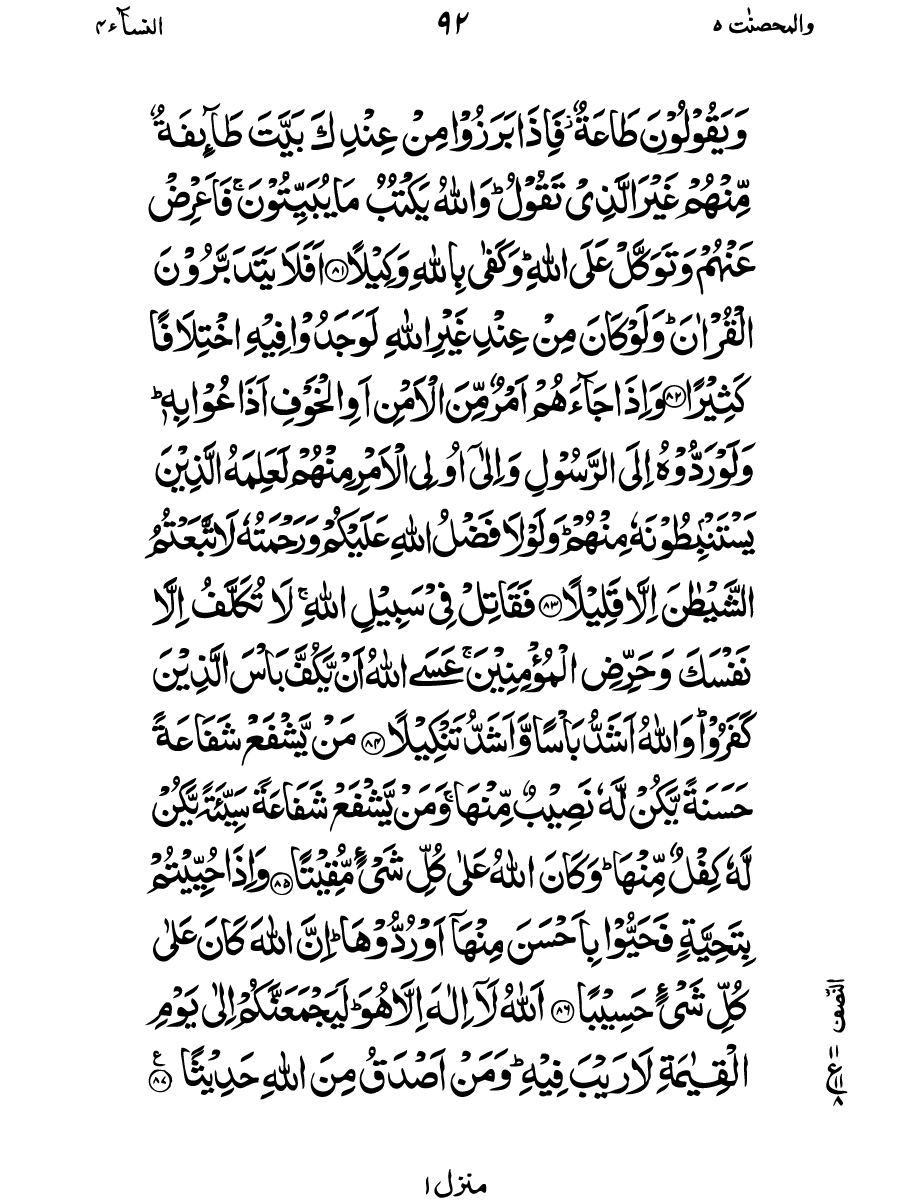 والمحصنٰت ۵ ۹۲ النسآء ۴
وَيَقُوْلُوْنَ طَاعَةٌ ۫ فَاِذَا بَرَزُوْا مِنْ عِنْدِكَ بَيَّتَ طَآىِٕفَةٌ
مِّنْهُمْ غَيْرَ الَّذِىْ تَقُوْلُ ؕ وَاللّٰهُ يَكْتُبُ مَا يُبَيِّتُوْنَ ۚ فَاَعْرِضْ
عَنْهُمْ وَتَوَكَّلْ عَلَى اللّٰهِ ؕ وَكَفٰى بِاللّٰهِ وَكِيْلًا ﴿۸۱﴾ اَفَلَا يَتَدَبَّرُوْنَ
الْقُرْاٰنَ ؕ وَلَوْ كَانَ مِنْ عِنْدِ غَيْرِ اللّٰهِ لَوَجَدُوْا فِيْهِ اخْتِلَافًا
كَثِيْرًا ﴿۸۲﴾ وَاِذَا جَآءَهُمْ اَمْرٌ مِّنَ الْاَمْنِ اَوِ الْخَوْفِ اَذَاعُوْا بِهٖ ؕ
وَلَوْ رَدُّوْهُ اِلَى الرَّسُوْلِ وَاِلٰۤى اُولِى الْاَمْرِ مِنْهُمْ لَعَلِمَهُ الَّذِيْنَ
يَسْتَنْۢبِطُوْنَهٗ مِنْهُمْ ؕ وَلَوْلَا فَضْلُ اللّٰهِ عَلَيْكُمْ وَرَحْمَتُهٗ لَاتَّبَعْتُمُ
الشَّيْطٰنَ اِلَّا قَلِيْلًا ﴿۸۳﴾ فَقَاتِلْ فِىْ سَبِيْلِ اللّٰهِ ۚ لَا تُكَلَّفُ اِلَّا
نَفْسَكَ وَحَرِّضِ الْمُؤْمِنِيْنَ ۚ عَسَے اللّٰهُ اَنْ يَّكُفَّ بَاْسَ الَّذِيْنَ
كَفَرُوْا ؕ وَاللّٰهُ اَشَدُّ بَاْسًا وَّاَشَدُّ تَنْكِيْلًا ﴿۸۴﴾ مَنْ يَّشْفَعْ شَفَاعَةً
حَسَنَةً يَّكُنْ لَّهٗ نَصِيْبٌ مِّنْهَا ۚ وَمَنْ يَّشْفَعْ شَفَاعَةً سَيِّئَةً يَّكُنْ
لَّهٗ كِفْلٌ مِّنْهَا ؕ وَكَانَ اللّٰهُ عَلٰى كُلِّ شَىْءٍ مُّقِيْتًا ﴿۸۵﴾ وَاِذَا حُيِّيْتُمْ
بِتَحِيَّةٍ فَحَيُّوْا بِاَحْسَنَ مِنْهَاۤ اَوْ رُدُّوْهَا ؕ اِنَّ اللّٰهَ كَانَ عَلٰى
كُلِّ شَىْءٍ حَسِيْبًا ﴿۸۶﴾ اَللّٰهُ لَاۤ اِلٰهَ اِلَّا هُوَ ؕ لَيَجْمَعَنَّكُمْ اِلٰى يَوْمِ
الْقِيٰمَةِ لَا رَيْبَ فِيْهِ ؕ وَمَنْ اَصْدَقُ مِنَ اللّٰهِ حَدِيْثًا ﴿۸۷﴾ ع
النّصف
۱۱ ع ۱۱ ۸
منزل ۱